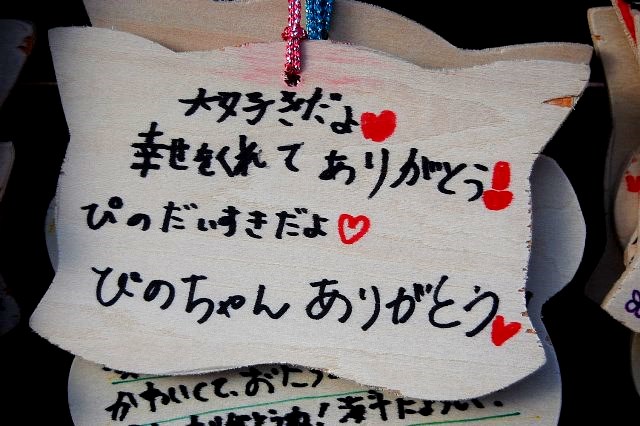 大好きだよ
幸せをくれてありがとう!
ぴのだいすきだよ
ぴのちゃん ありがとう
かわいくて、おたっ